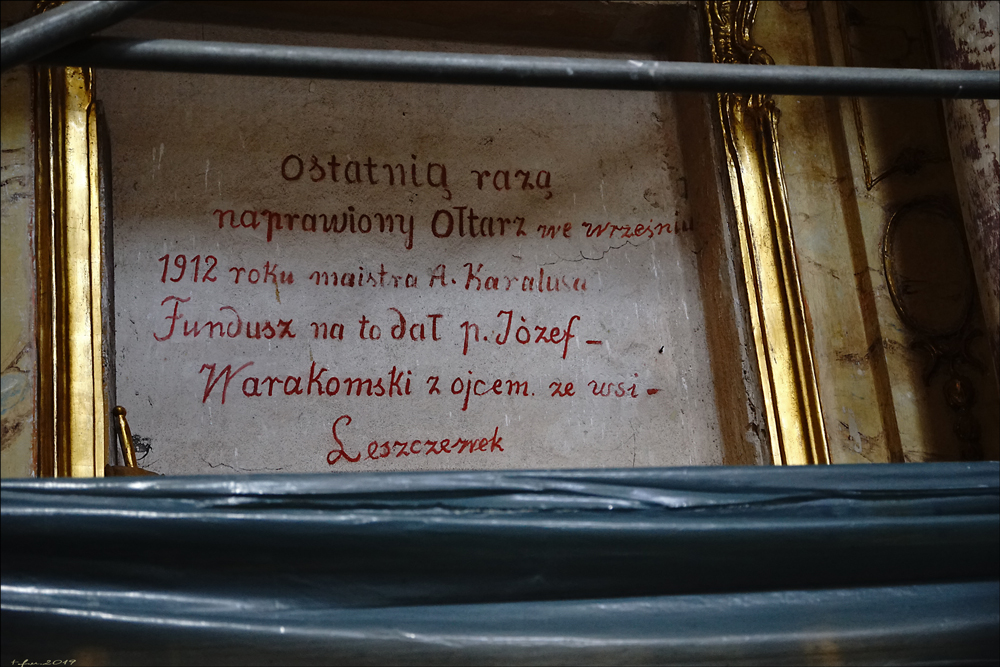 Ostatnią razą
naprawiony Ołtarz we wrześniu
1912 roku maistra A. Karalusa
Fundusz na to dał p. Józef -
Warakomski z ojcem. ze wsi -
Leszczewek
2019